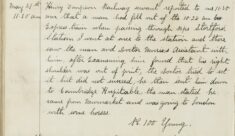 May 25th Henry Simpson Railway servant reported at 11.20
11.20 am am that a man had fell out of the 10.22 am
Express train when passing through Stratford
Station I went at once to the Station and there
saw the man and Doctor Assistant with
him, after Examining him found that his right
shoulder was out of joint, the Doctor tried to set
it but did not succeed, he then sent him down
to Cambridge Hospital the man stated he
came from Newmarket and was going to London
with some horses.
PC 100 Young